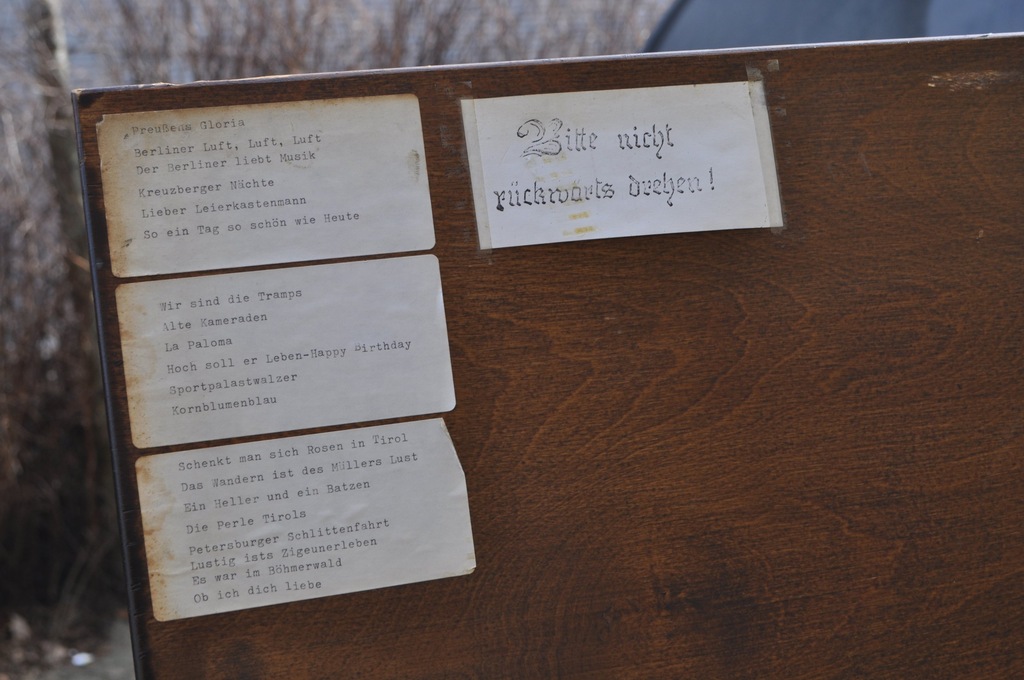 Preußens Gloria
Berliner Luft, Luft, Luft
Der Berliner liebt Musik
Kreuzberger Nächte
Lieber Leierkastenmann
So ein Tag so schön wie Heute
Wir sind die Tramps
Alte Kameraden
La Paloma
Hoch soll er Leben-Happy Birthday
Sportpalastwalzer
Kornblumenblau
Schenkt man sich Rosen in Tirol
Das Wandern ist des Müllers Lust
Ein Heller und ein Batzen
Die Perle Tirols
Petersburger Schlittenfahrt
Lustig ists Zigeunerleben
Es war im Böhmerwald
Ob ich dich liebe
Bitte nicht
rückwärts drehen!